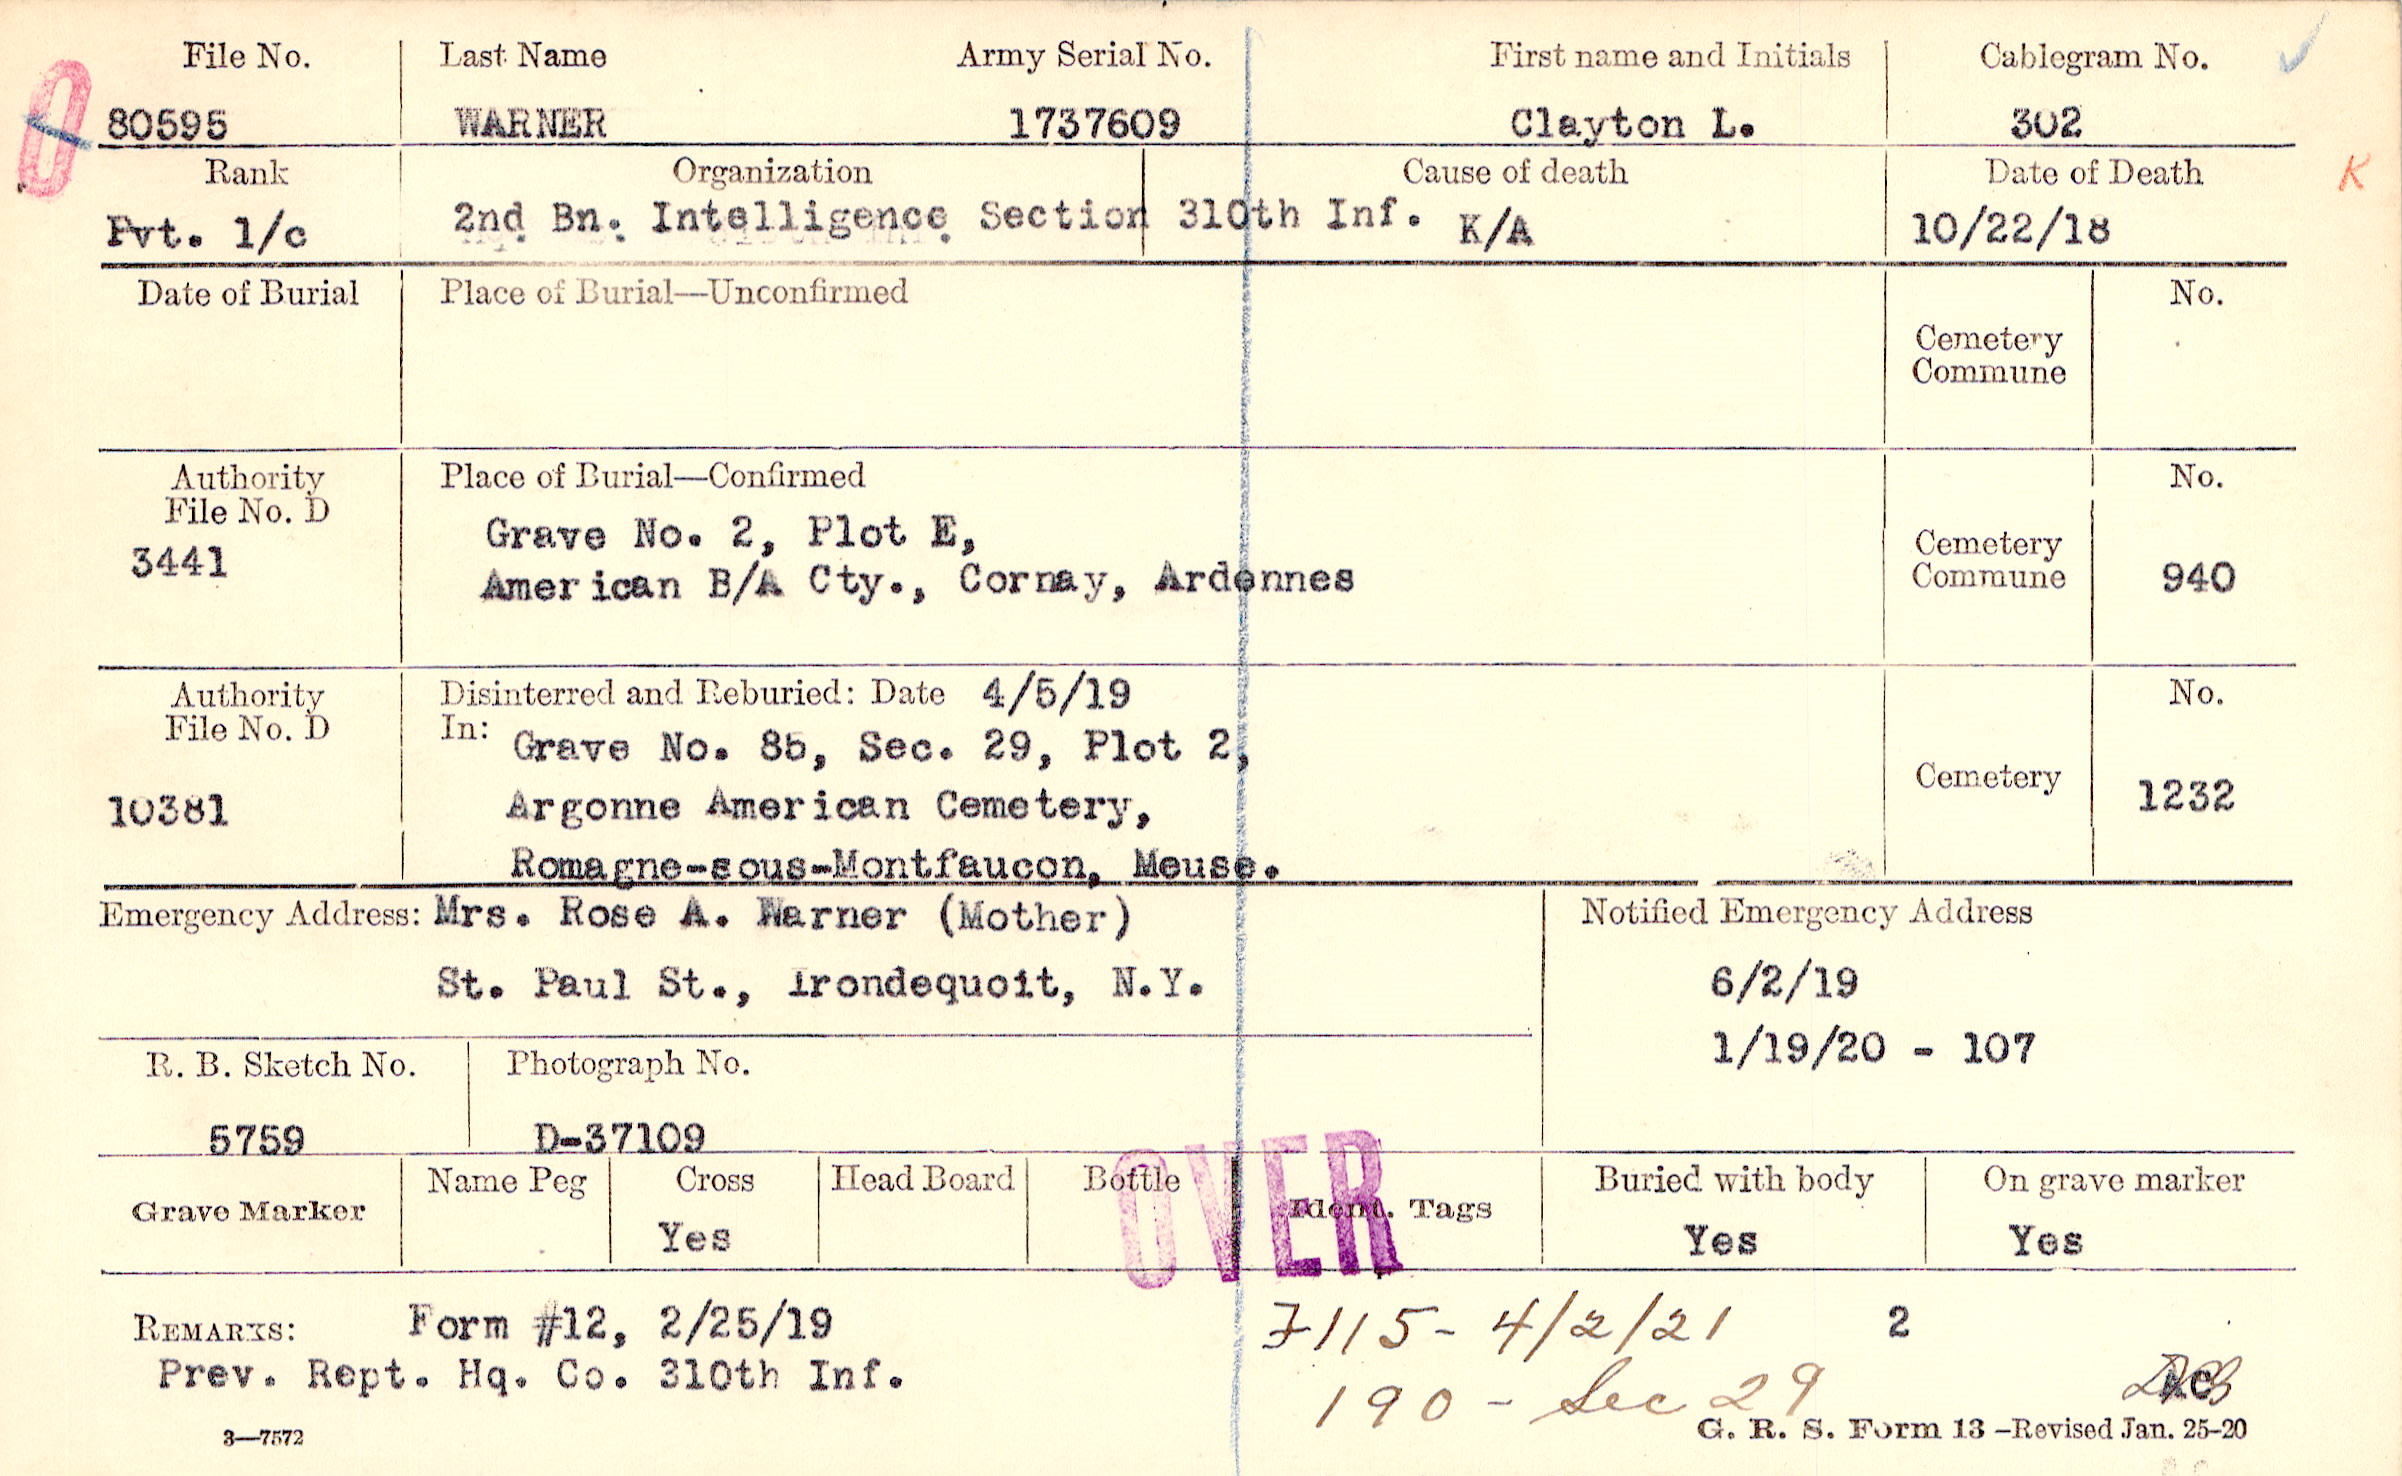 File No. Last Name Army Serial No. First name and Initials Cablegram No.
80595 WARNER 1737609 Clayton L. 302
Rank Organization Cause of death Date of Death
K
Pvt. 1/c 2nd Bn. Intelligence Section 310th Inf. K/A 10/22/18
Date of Burial Place of Burial—Unconfirmed No.
Cemetery
Commune
Authority Place of Burial—Confirmed No.
File No. D
3441 Grave No. 2, Plot E,
American B/A Cty., Cornay, Ardennes
Cemetery
Commune 940
Authority Disinterred and Reburied: Date 4/5/19 No.
File No. D In: Grave No. 85, Sec. 29, Plot 2,
10381 Argonne American Cemetery, Cemetery 1232
Romagne-sous-Montfaucon, Meuse.
Emergency Address: Mrs. Rose A. Warner (Mother) Notified Emergency Address
St. Paul St., Irondequoit, N.Y. 6/2/19
1/19/20 - 107
R. B. Sketch No. Photograph No.
5759 D-37109
OVER
Grave Marker Name Peg Cross Head Board Bottle Ident. Tags Buried with body On grave marker
Yes Yes Yes
REMARKS: Form #12, 2/25/19 7115- 4/2/21 2
Prev. Rept. Hq. Co. 310th Inf. 190 - Sec 29
3—7572 G. R. S. Form 13 –Revised Jan. 25-20